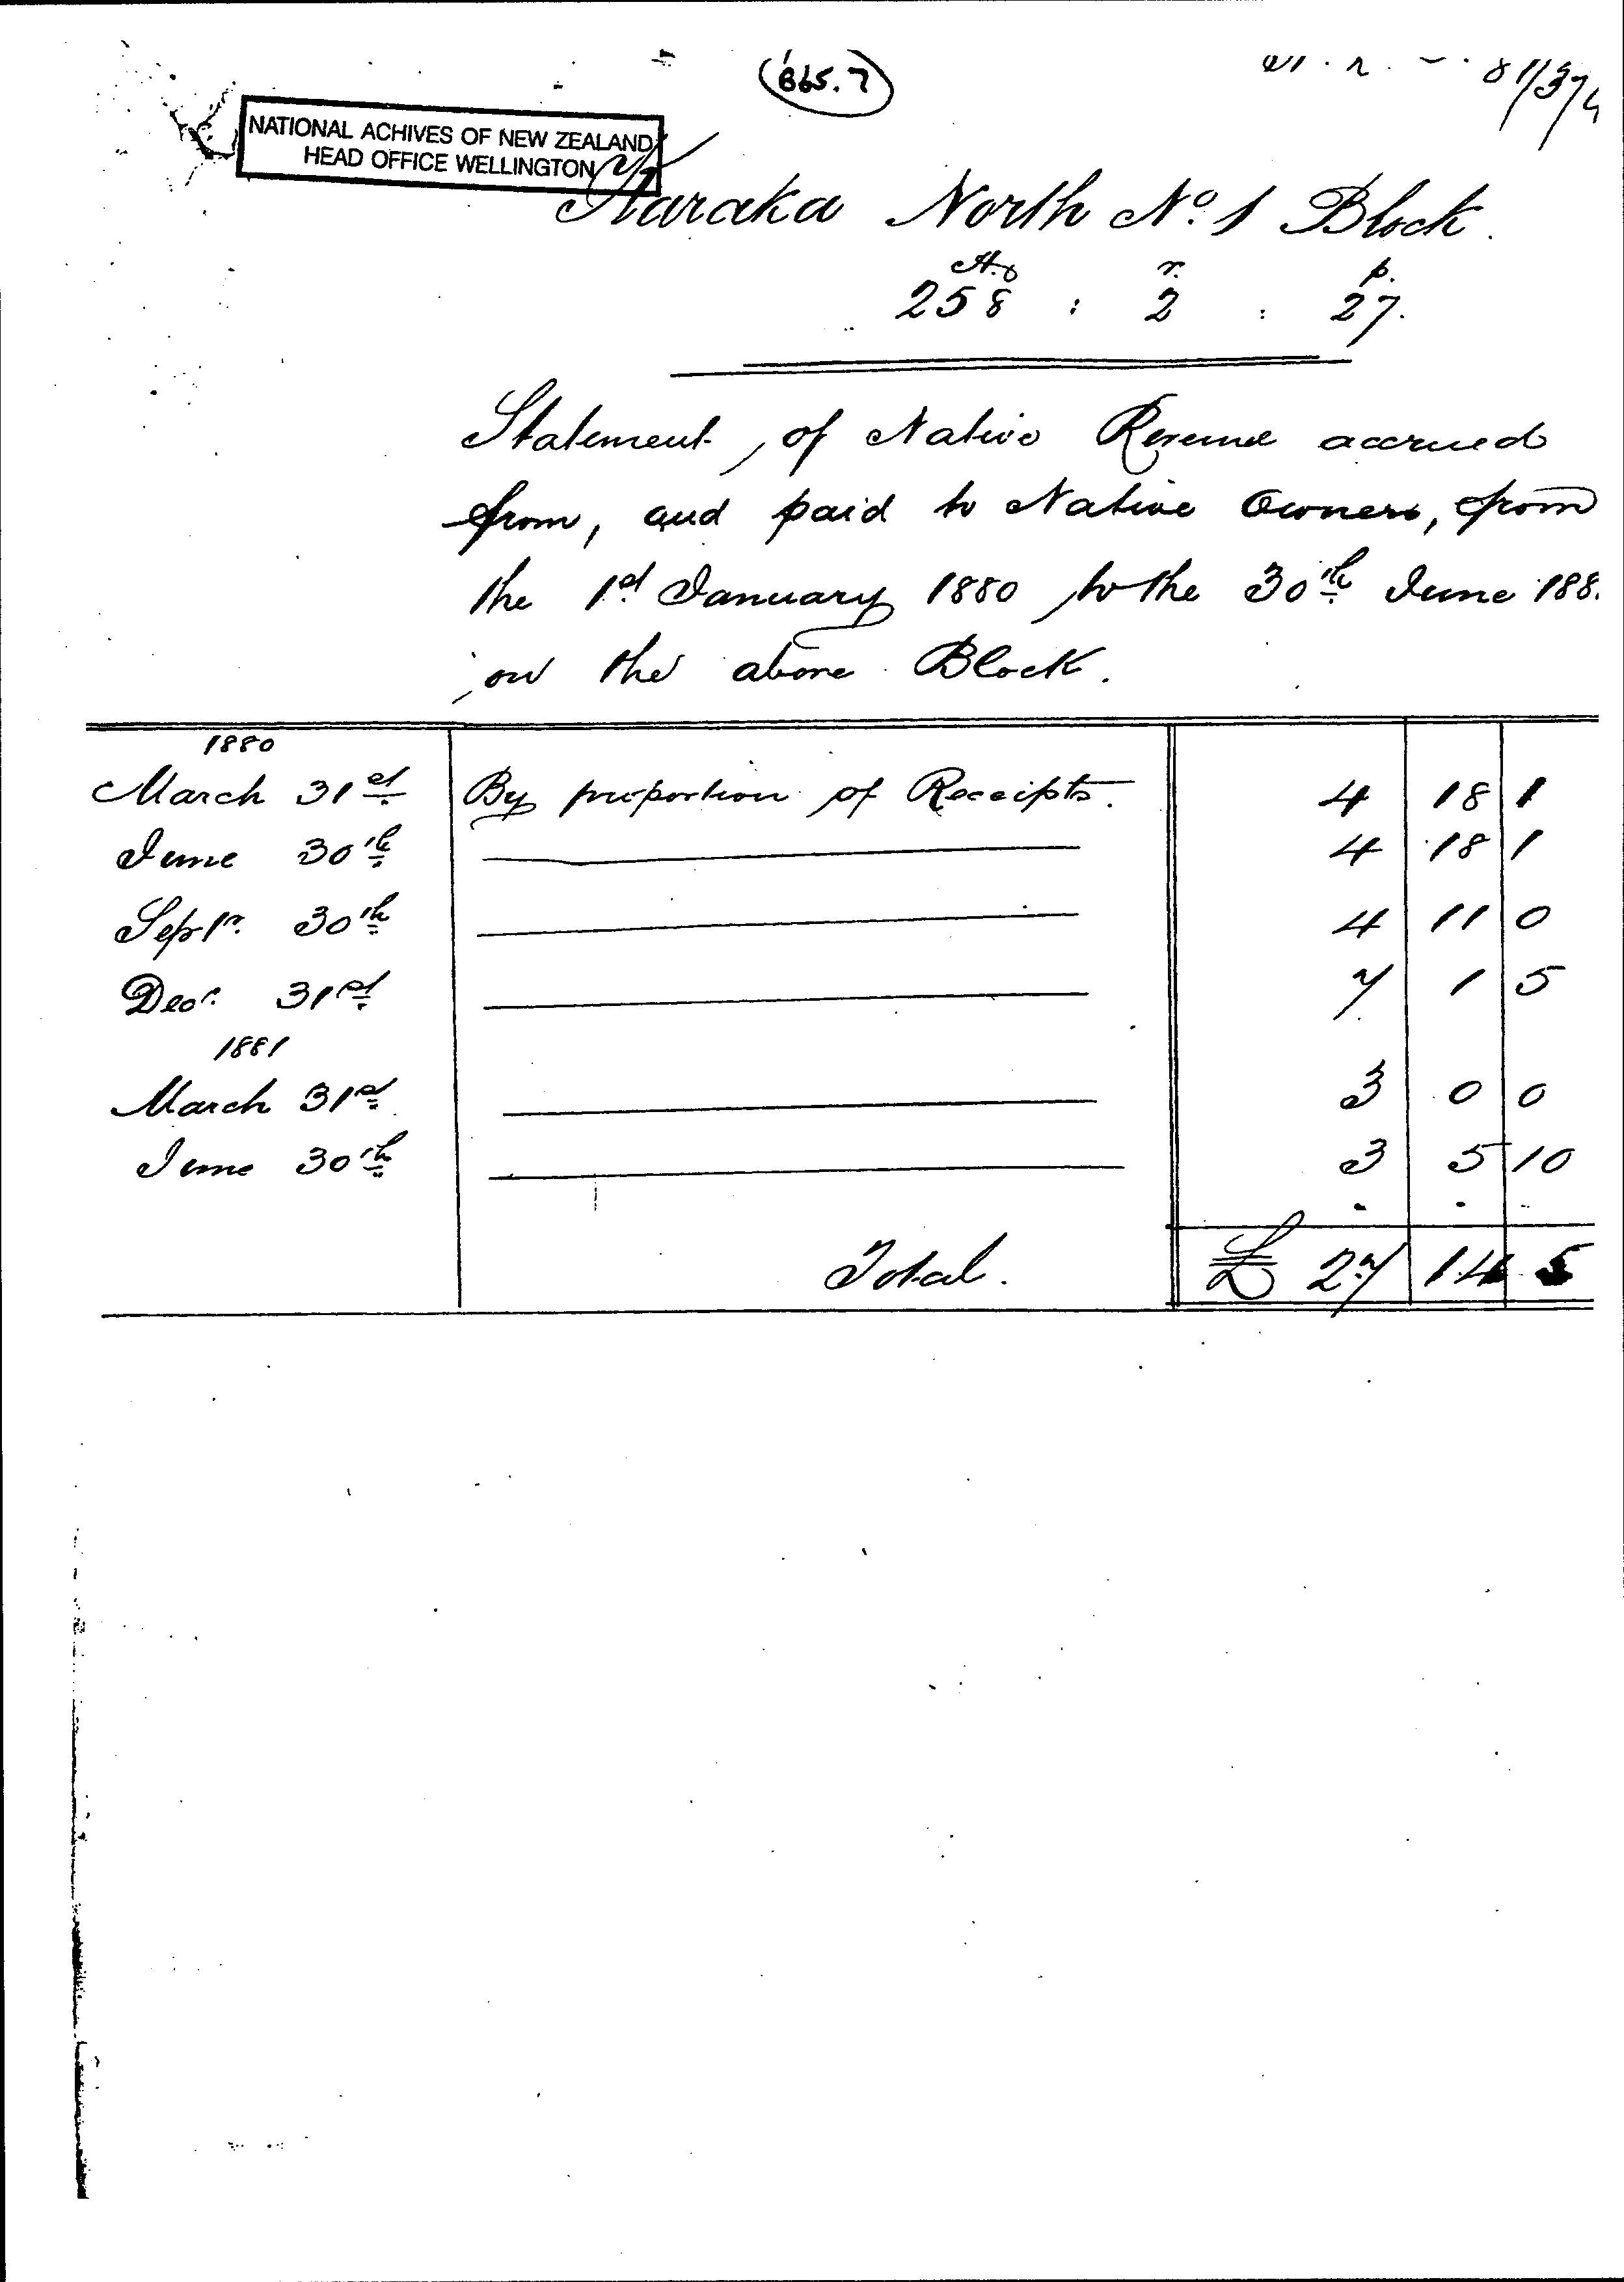 (865.7)
NATIONAL ACHIVES OF NEW ZEALAND
HEAD OFFICE WELLINGTON
Karaka North No. 1 Block.
A. r. p.
258 : 2 : 27.
Statement, of Native Revenue accrued
from, and paid to Native Owners, from
the 1st January 1880, to the 30th June 188
on the above Block.
1880
March 31st By proportion of Receipts. 4 18 1
June 30th 4 18 1
Septr. 30th 4 11 0
Decr. 31st 7 1 5
1881
March 31st 3 0 0
June 30th 3 5 10
Total. £ 27 14 5